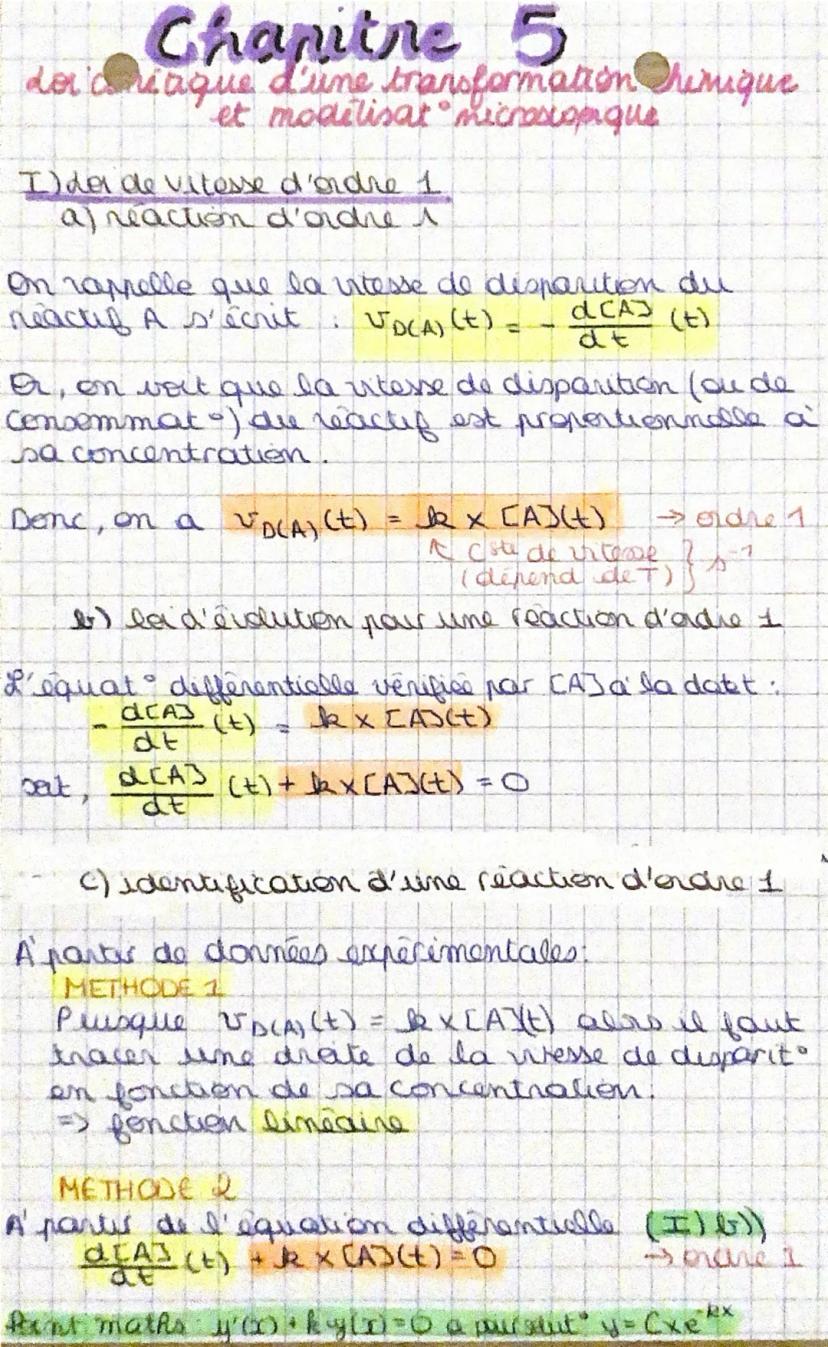 Chapitre 5
Loi cinétique d'une transformation chimique
et modélisat° microscopique
I) Loi de vitesse d'ordre 1
a) réaction d'ordre 1
On rappelle que la vitesse de disparition du
réactif A s'écrit : v_D(A)(t) = - d[A]/dt (t)
Or, on voit que la vitesse de disparition (ou de
consommat°) du réactif est proportionnelle à
sa concentration.
Donc, on a v_D(A)(t) = k × [A](t) → ordre 1
↖ Cste de vitesse } s⁻¹
(dépend de T)
b) loi d'évolution pour une réaction d'ordre 1
L'équat° différentielle vérifiée par [A] à la date t :
- d[A]/dt (t) = k × [A](t)
soit, d[A]/dt (t) + k × [A](t) = 0
c) identification d'une réaction d'ordre 1
A partir de données expérimentales :
METHODE 1
Puisque v_D(A)(t) = k × [A](t) alors il faut
tracer une droite de la vitesse de disparit°
en fonction de sa concentration.
=> fonction linéaire
METHODE 2
A partir de l'équation différentielle (I) b))
d[A]/dt (t) + k × [A](t) = 0 → ordre 1
Point maths : y'(x) + k y(x) = 0 a pour solut° y = C × e^-kx